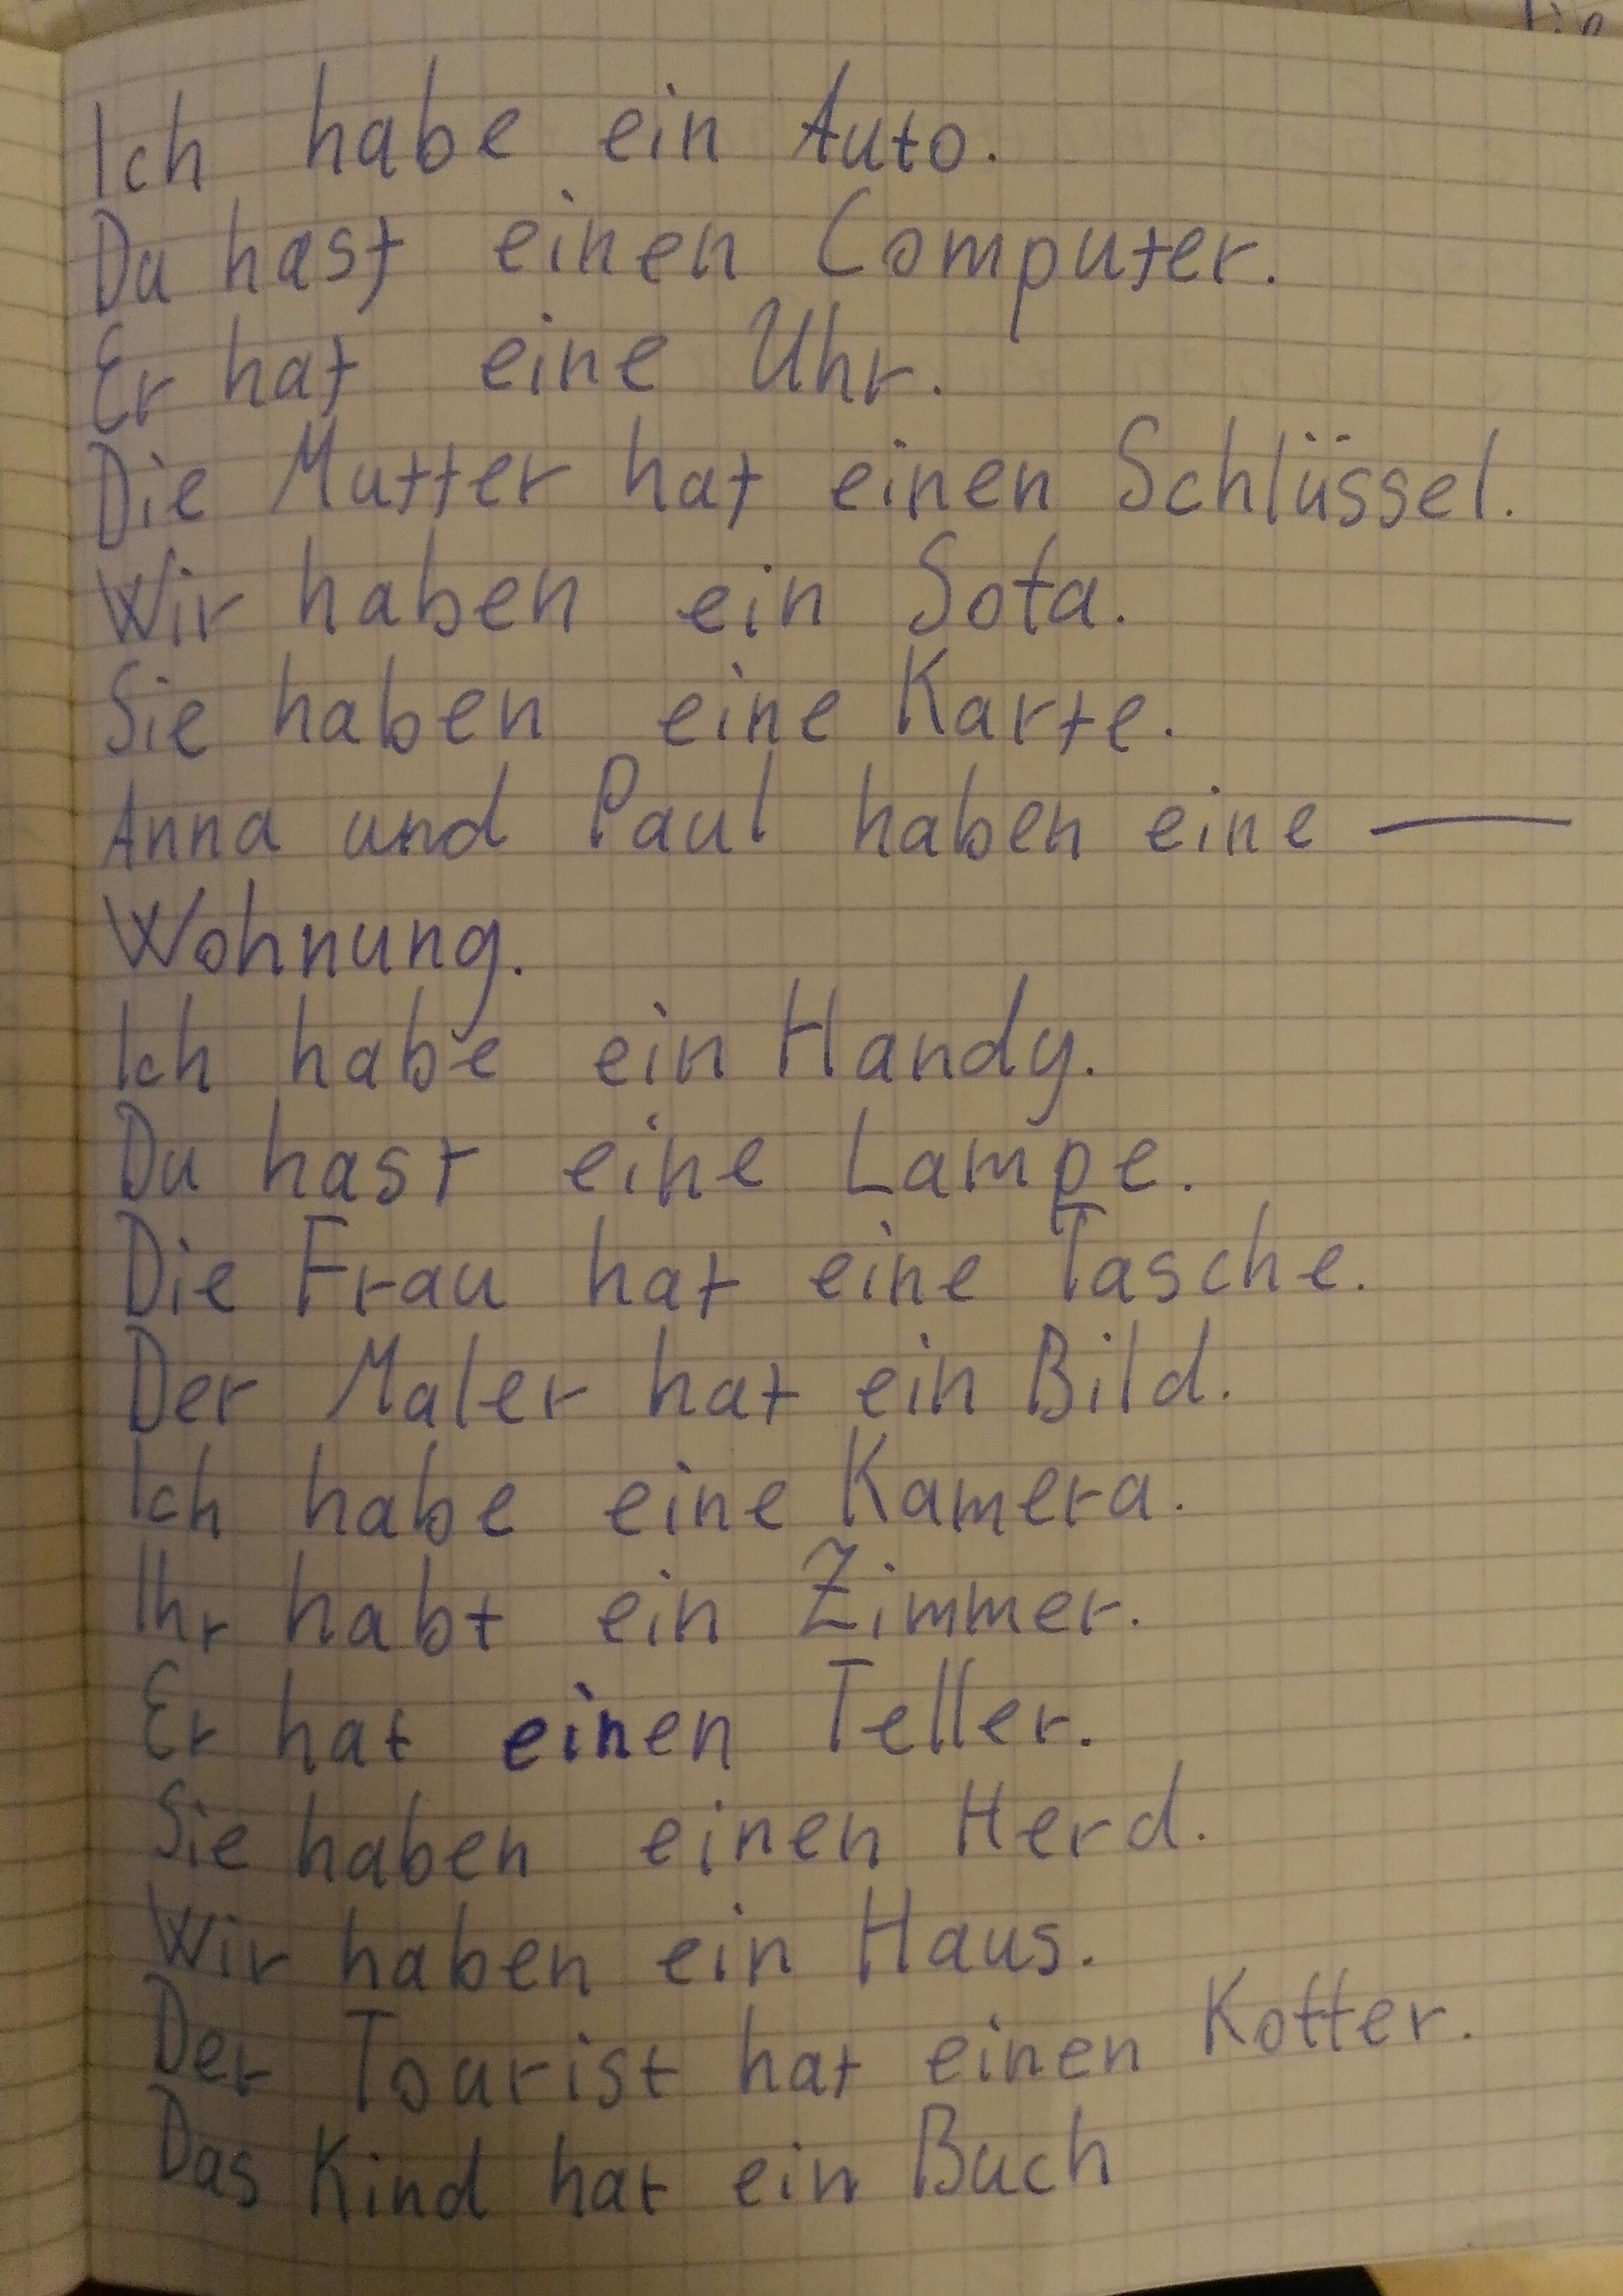 Ich habe ein Auto.
Du hast einen Computer.
Er hat eine Uhr.
Die Mutter hat einen Schlüssel.
Wir haben ein Sofa.
Sie haben eine Karte.
Anna und Paul haben eine —
Wohnung.
Ich habe ein Handy.
Du hast eine Lampe.
Die Frau hat eine Tasche.
Der Maler hat ein Bild.
Ich habe eine Kamera.
Ihr habt ein Zimmer.
Er hat einen Teller.
Sie haben einen Herd.
Wir haben ein Haus.
Der Tourist hat einen Koffer.
Das Kind hat ein Buch